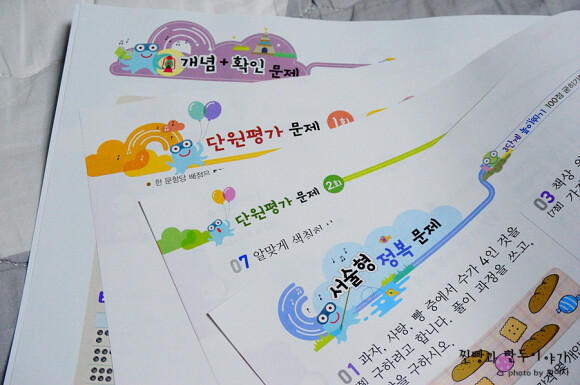 개념 + 확인 문제
단원평가 문제 1회
• 한 문항당 배점은
단원평가 문제 2회
07 알맞게 색칠하
서술형 정복 문제
01 과자, 사탕, 빵 중에서 수가 4인 것을
구하려고 합니다. 풀이 과정을 쓰고,
구하시오.
3단계
100점
03 책상 위
[7점]
찐빵과 만두이야기
photo by